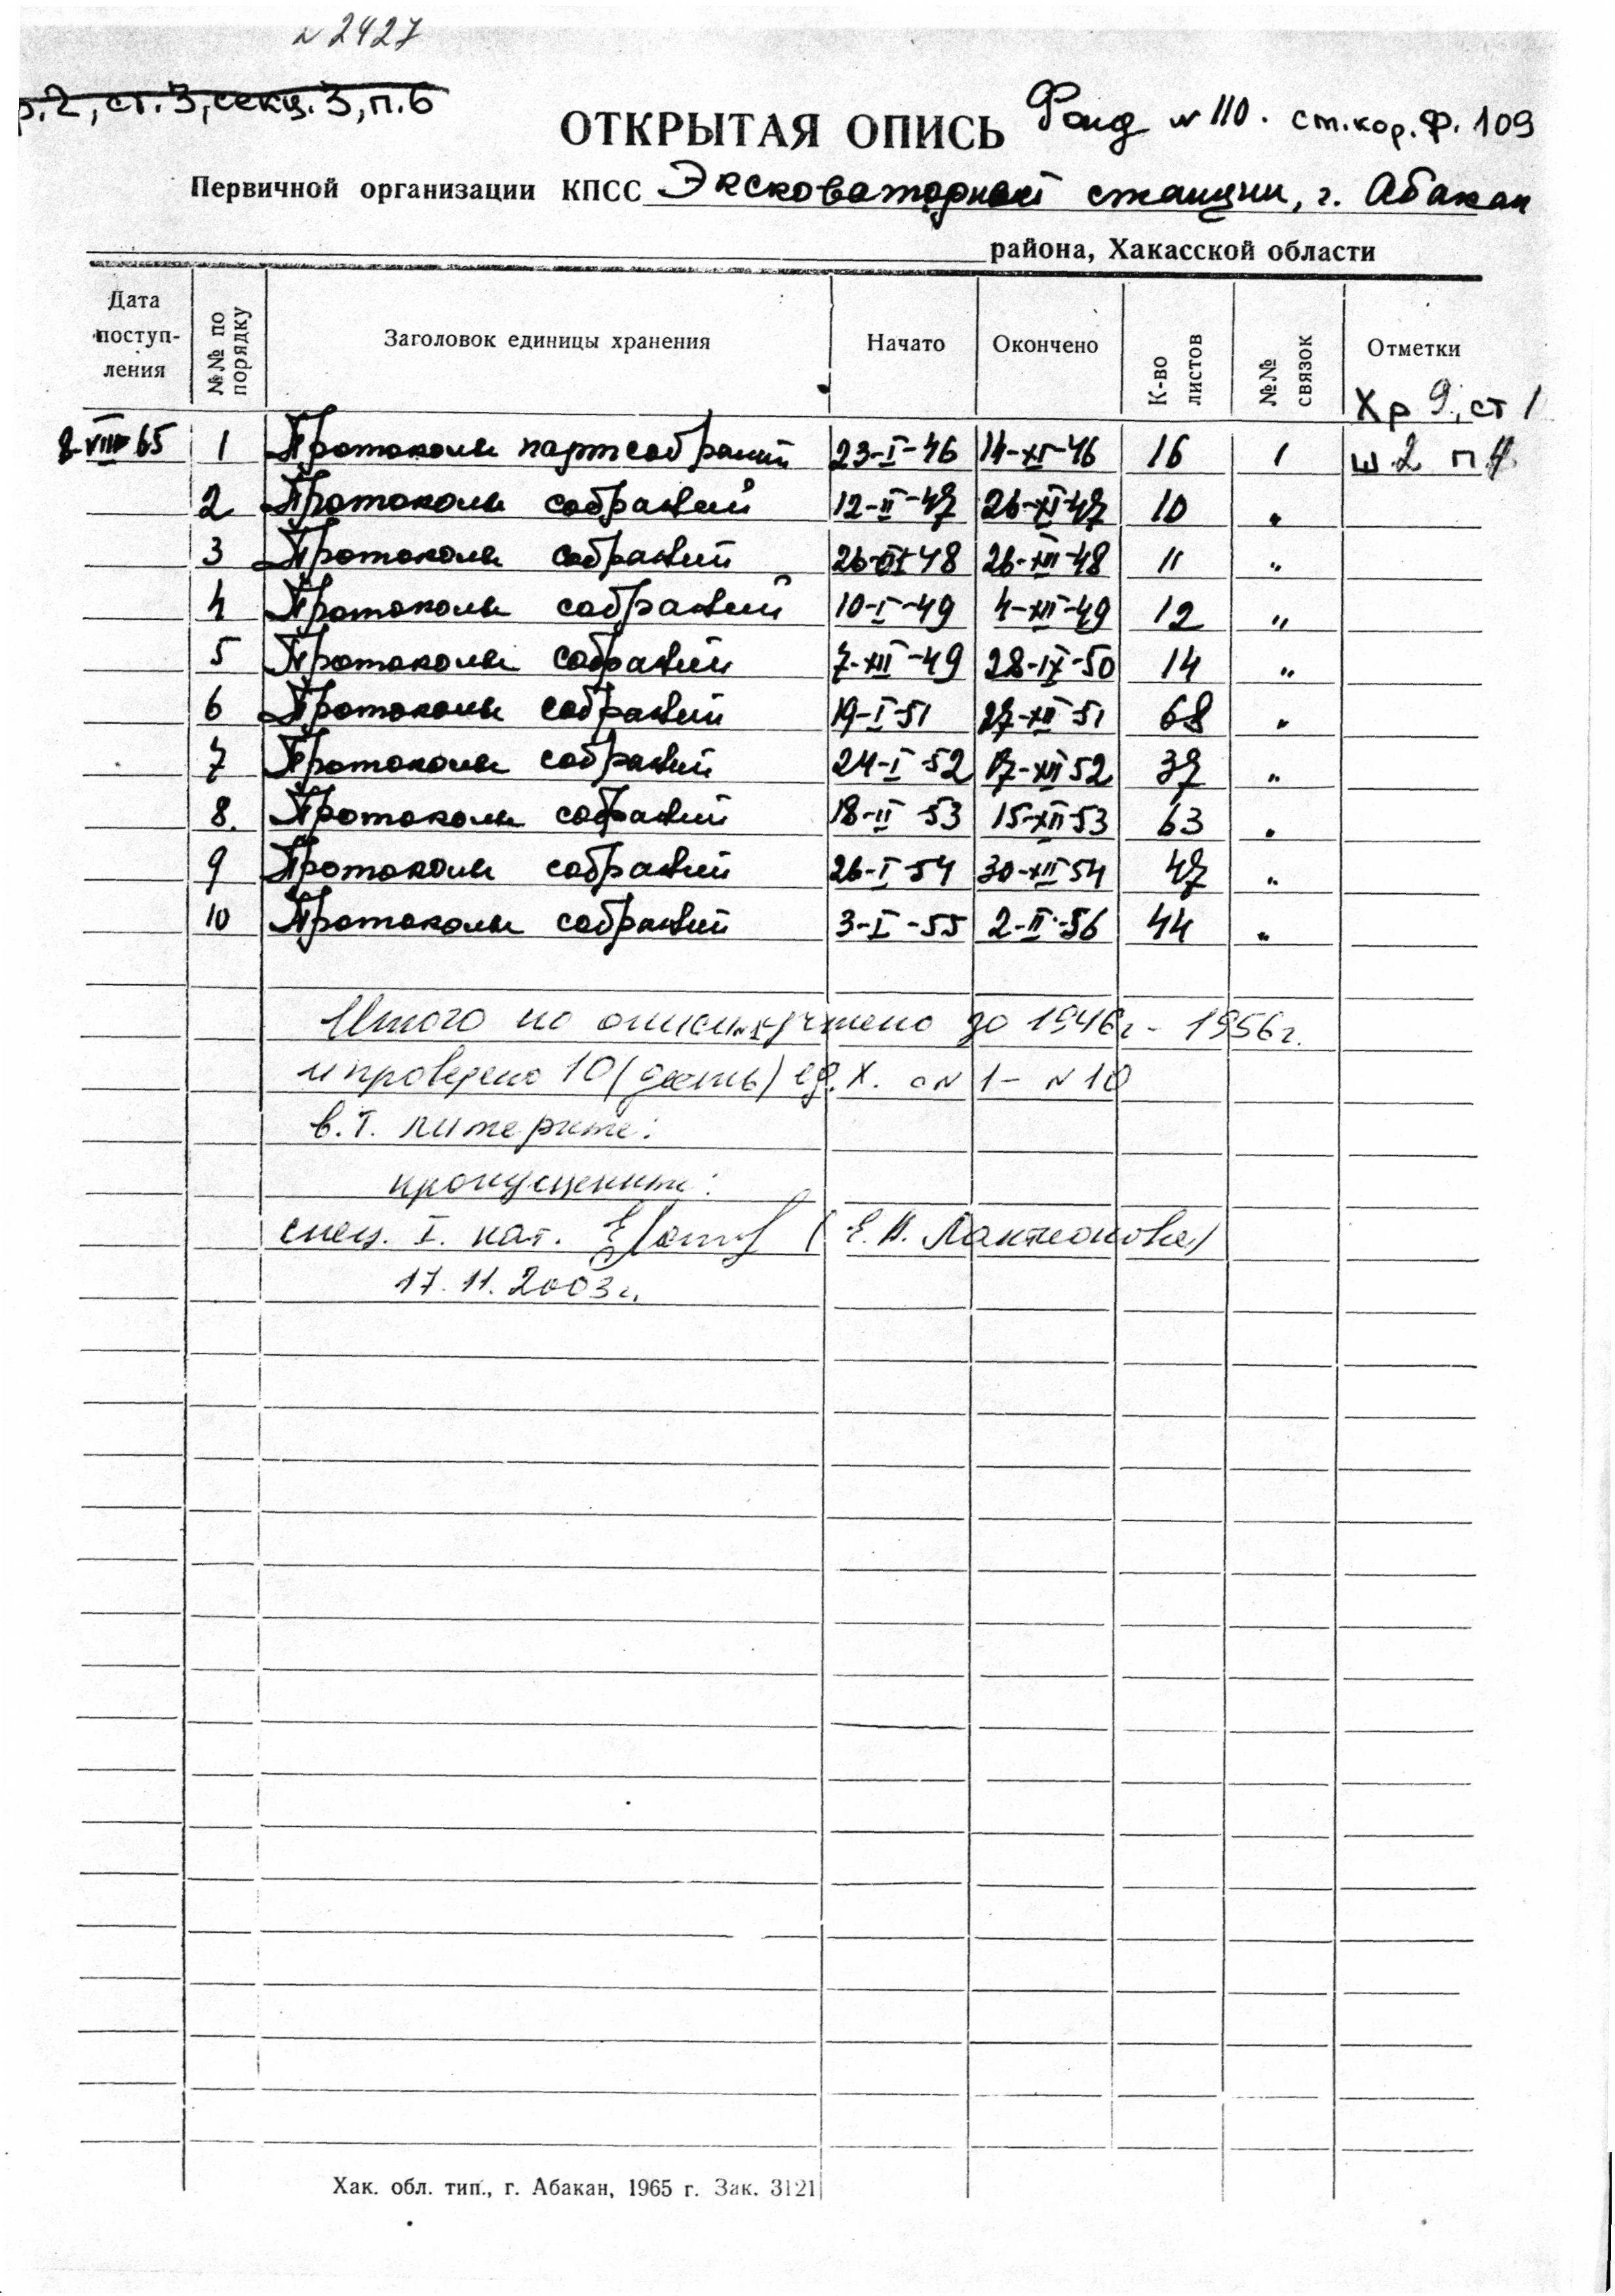 № 2427
р.2, ст.3, секц.3, п.6
ОТКРЫТАЯ ОПИСЬ Фонд № 110. ст.кор. ф. 109
Первичной организации КПСС Эксковаторной станции, г. Абакан
района, Хакасской области
Дата поступ-ления №№ по порядку Заголовок единицы хранения Начато Окончено К-во листов №№ связок Отметки
Хр 9, ст 1
8-VIII-65 1 Протоколы партсобраний 23-I-46 14-XI-46 16 1 ш.2 п.
2 Протоколы собраний 12-II-47 26-XI-47 10 "
3 Протоколы собраний 26- -48 26-XII-48 11 "
4 Протоколы собраний 10-I-49 4-XII-49 12 "
5 Протоколы собраний 7-XII-49 28-IX-50 14 "
6 Протоколы собраний 19-I-51 27-XII-51 68 "
7 Протоколы собраний 24-I-52 17-XII 52 37 "
8. Протоколы собраний 18-II-53 15-XII-53 63 "
9 Протоколы собраний 26-I-54 30-XII-54 47 "
10 Протоколы собраний 3-I-55 2-II-56 44 "
Итого по описи учтено до 1946г - 1956г.
и проведено 10 (десять) ед. х. с № 1 - № 10
в.т. литерные:
пропущенные:
спец. I. кат. (Е. Лактионова)
17.11.2003г.
Хак. обл. тип., г. Абакан, 1965 г. Зак. 3121